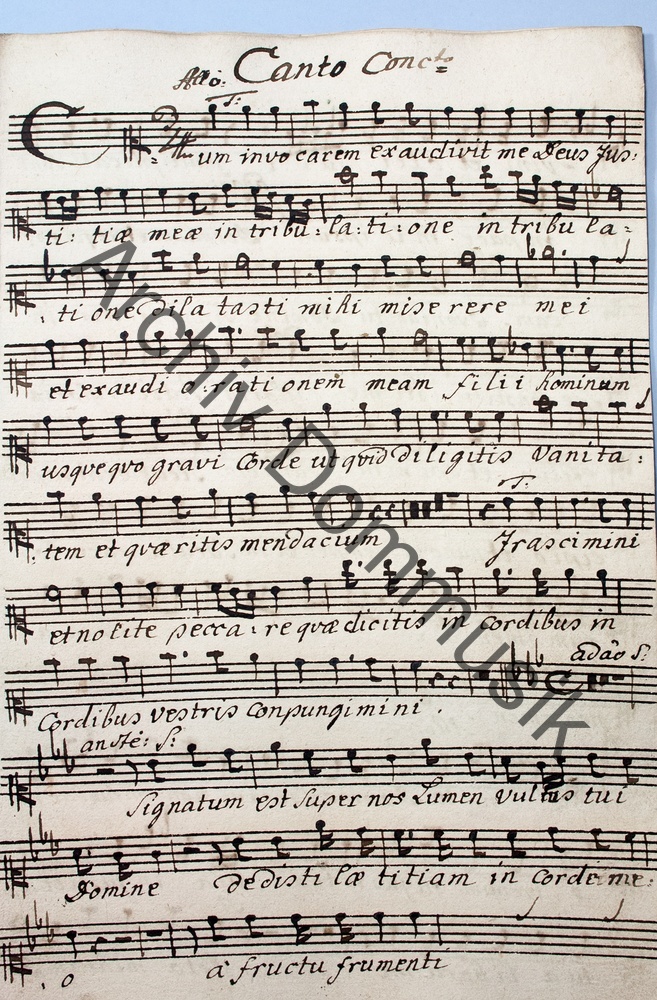 Allo: Canto Concto
T:
Cum invocarem exaudivit me Deus Jus:
ti: tiæ meæ in tribu: la: ti: one in tribu la=
ti one dila tasti mihi mise rere mei
et exaudi o: rati onem meam filii hominum
usque quo gravi Corde ut quid diligitis vanita:
T:
tem et quæritis mendacium Jrascimini
et nolite pecca: re quæ dicitis in cordibus in
adão S:
Cordibus vestris conpungimini.
S:
signatum est super nos Lumen vultus tui
Domine dedisti læ titiam in corde me:
o à fructu frumenti
Archiv Dommusik